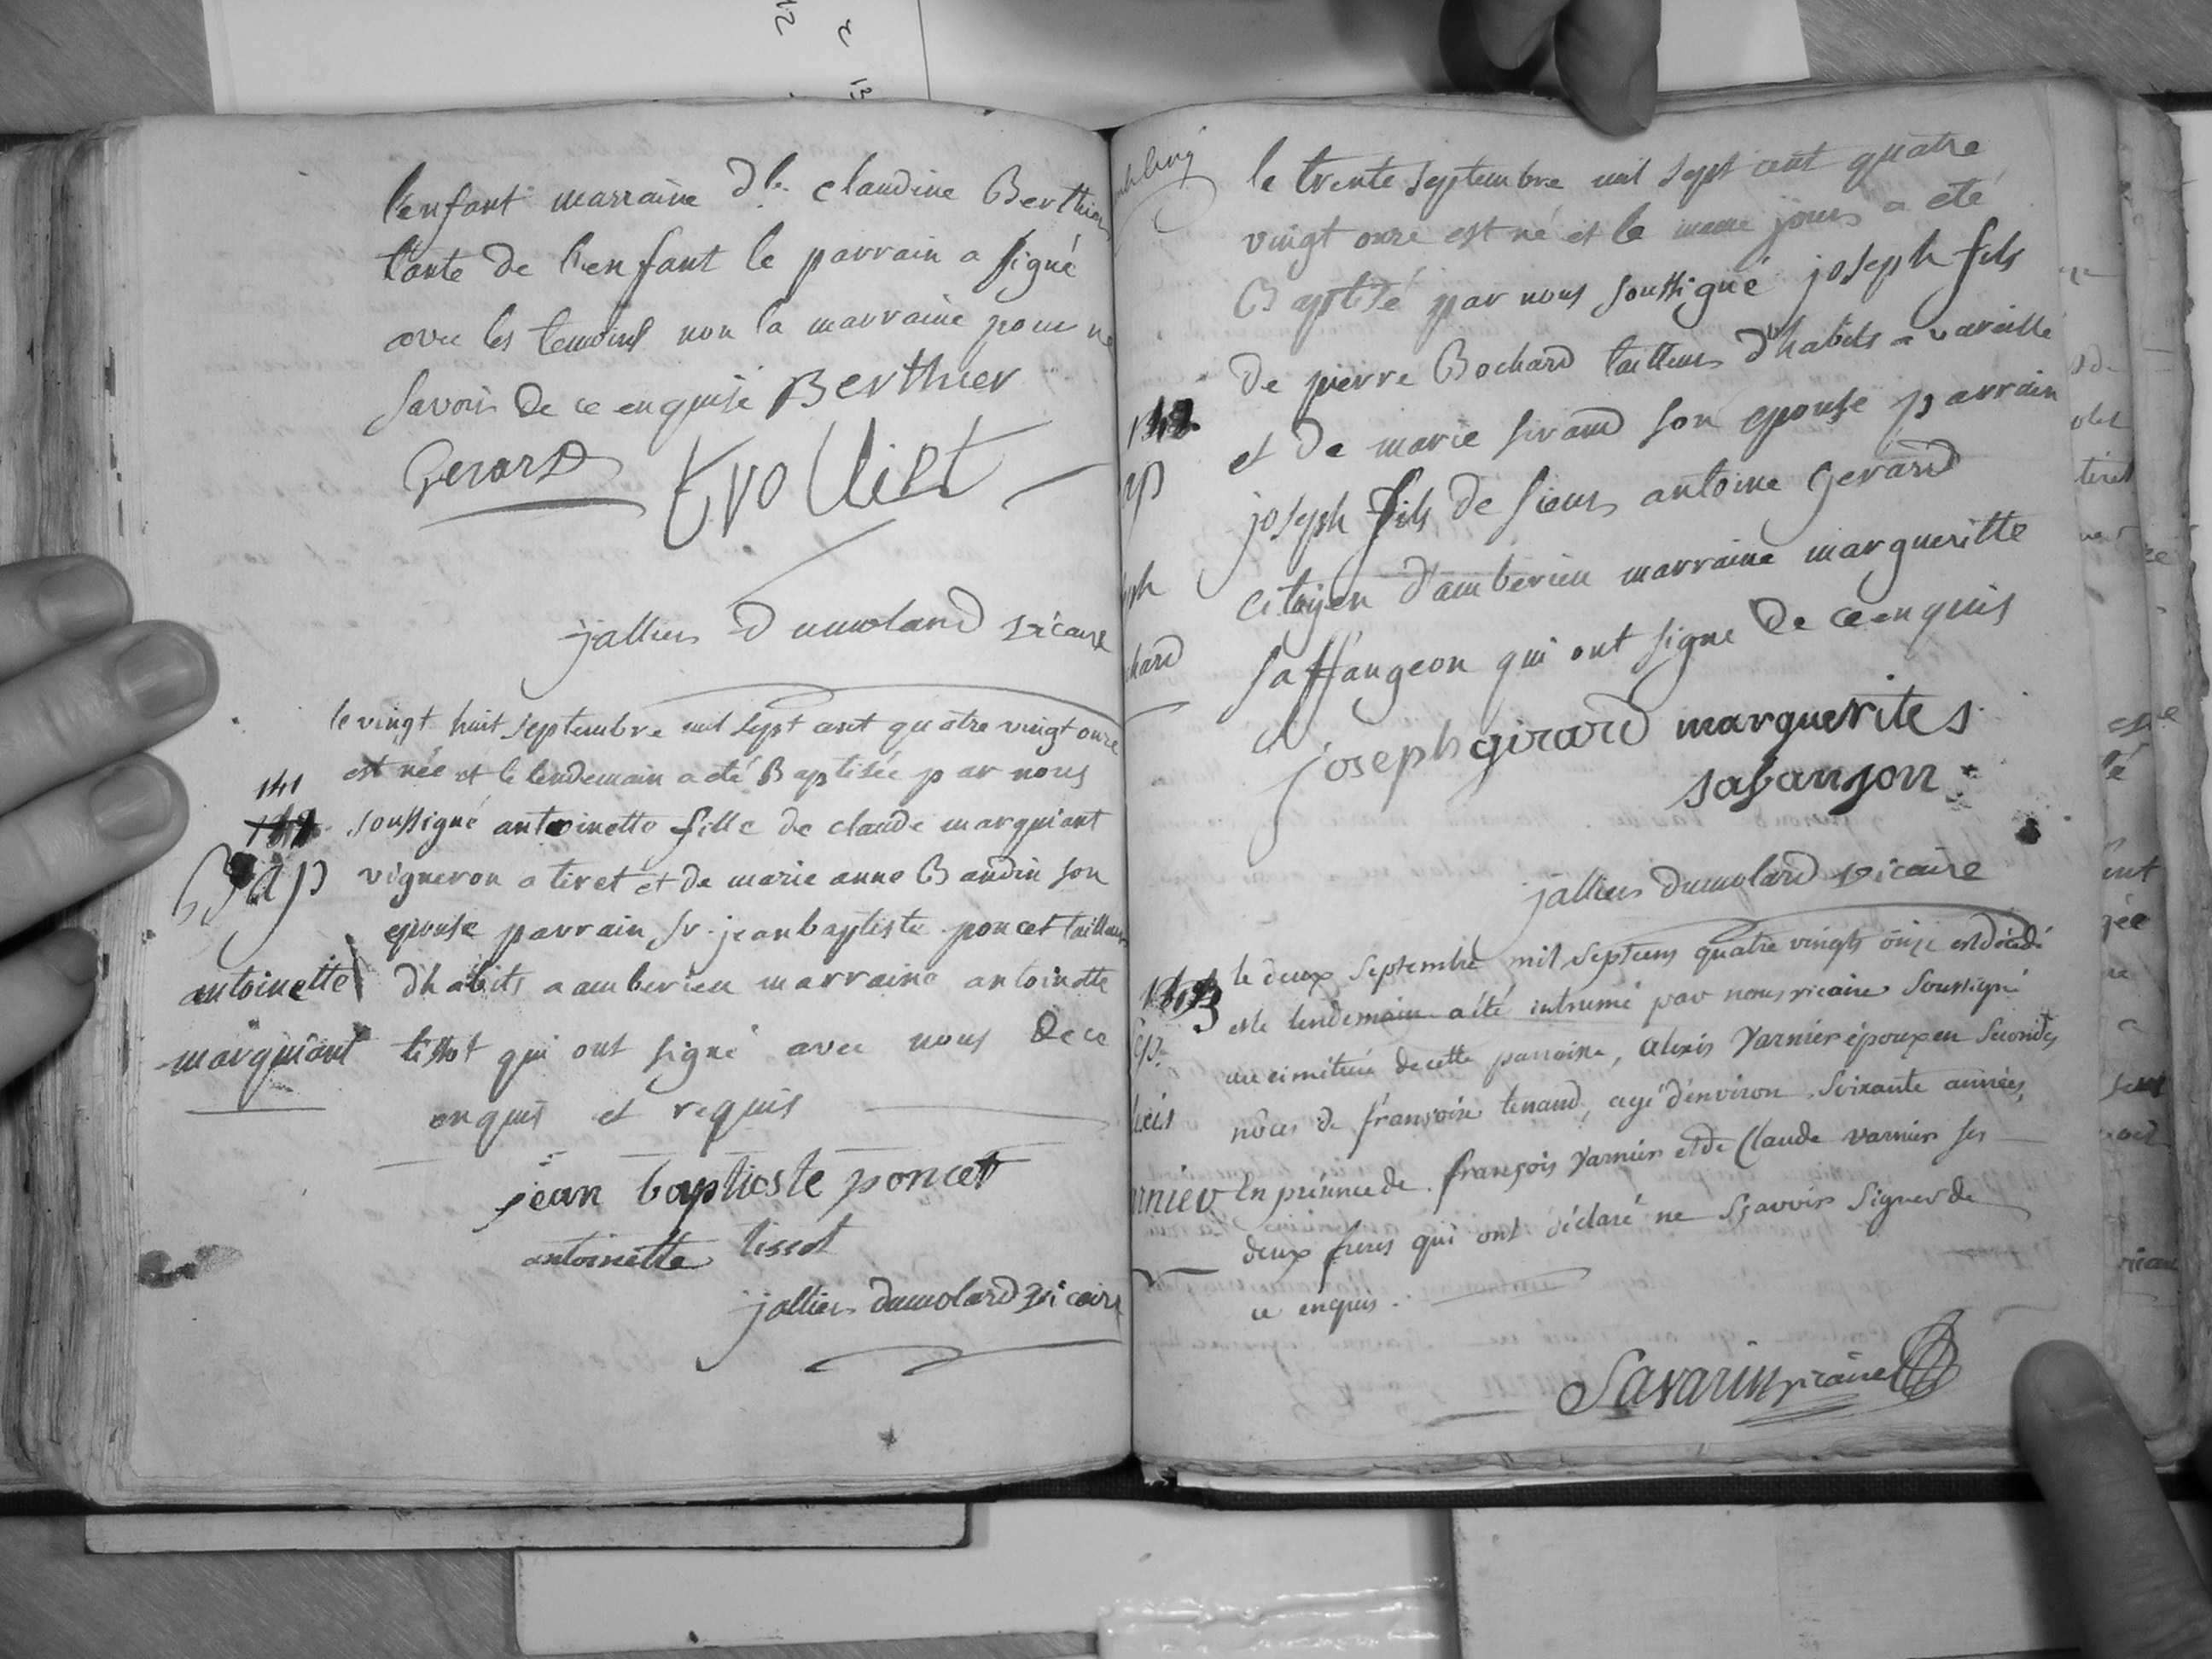 l'enfant marraine dle claudine Berthier
tante de l'enfant le parrain a signé
avec les temoins non la marraine pour ne
savoir de ce enquise Berthier
Gerard trolliet
jallier Dumolard vicaire
le vingt huit septembre mil sept cent quatre vingt onze
est née et le lendemain a été Baptisée par nous
141
soussigné antoinette fille de claude marguiant
Bap
vigneron a tiret et de marie anne Baudin son
epouse parrain sr. jean baptiste poncet tailleur
antoinette
d'habits a amberieu marraine antoinette
marguiant
tissot qui ont signé avec nous de ce
enquis et requis
jean baptieste poncet
antoinette tissot
jallier dumolard vicaire
le trente septembre mil sept cent quatre
vingt onze est né et le meme jours a eté
Baptisé par nous soussigné joseph fils
de pierre Bochard tailleur d'habits a vareille
142
et de marie sirand son epouse parrain
ap
joseph fils de sieur antoine Gerard
ph
citoyen d'amberieu marraine margueritte
hard
saffangeon qui ont signe de ce enquis
joseph girard marguerite s
sabanjon
jallier dumolard vicaire
le deux Septembre mil sept cens quatre vingts onze est décédé
et le lendemain a été inhumé par nous vicaire Soussigné
au cimitiere de cette parroisse, alexis Varnier époux en Secondes
nôces de françoise tenand, agé d'environ Soixante années,
rnier
En présence de françois Varnier et de Claude varnier ses
deux freres qui ont déclaré ne Sçavoir Signer de
ce enquis.
Savarin vicaire